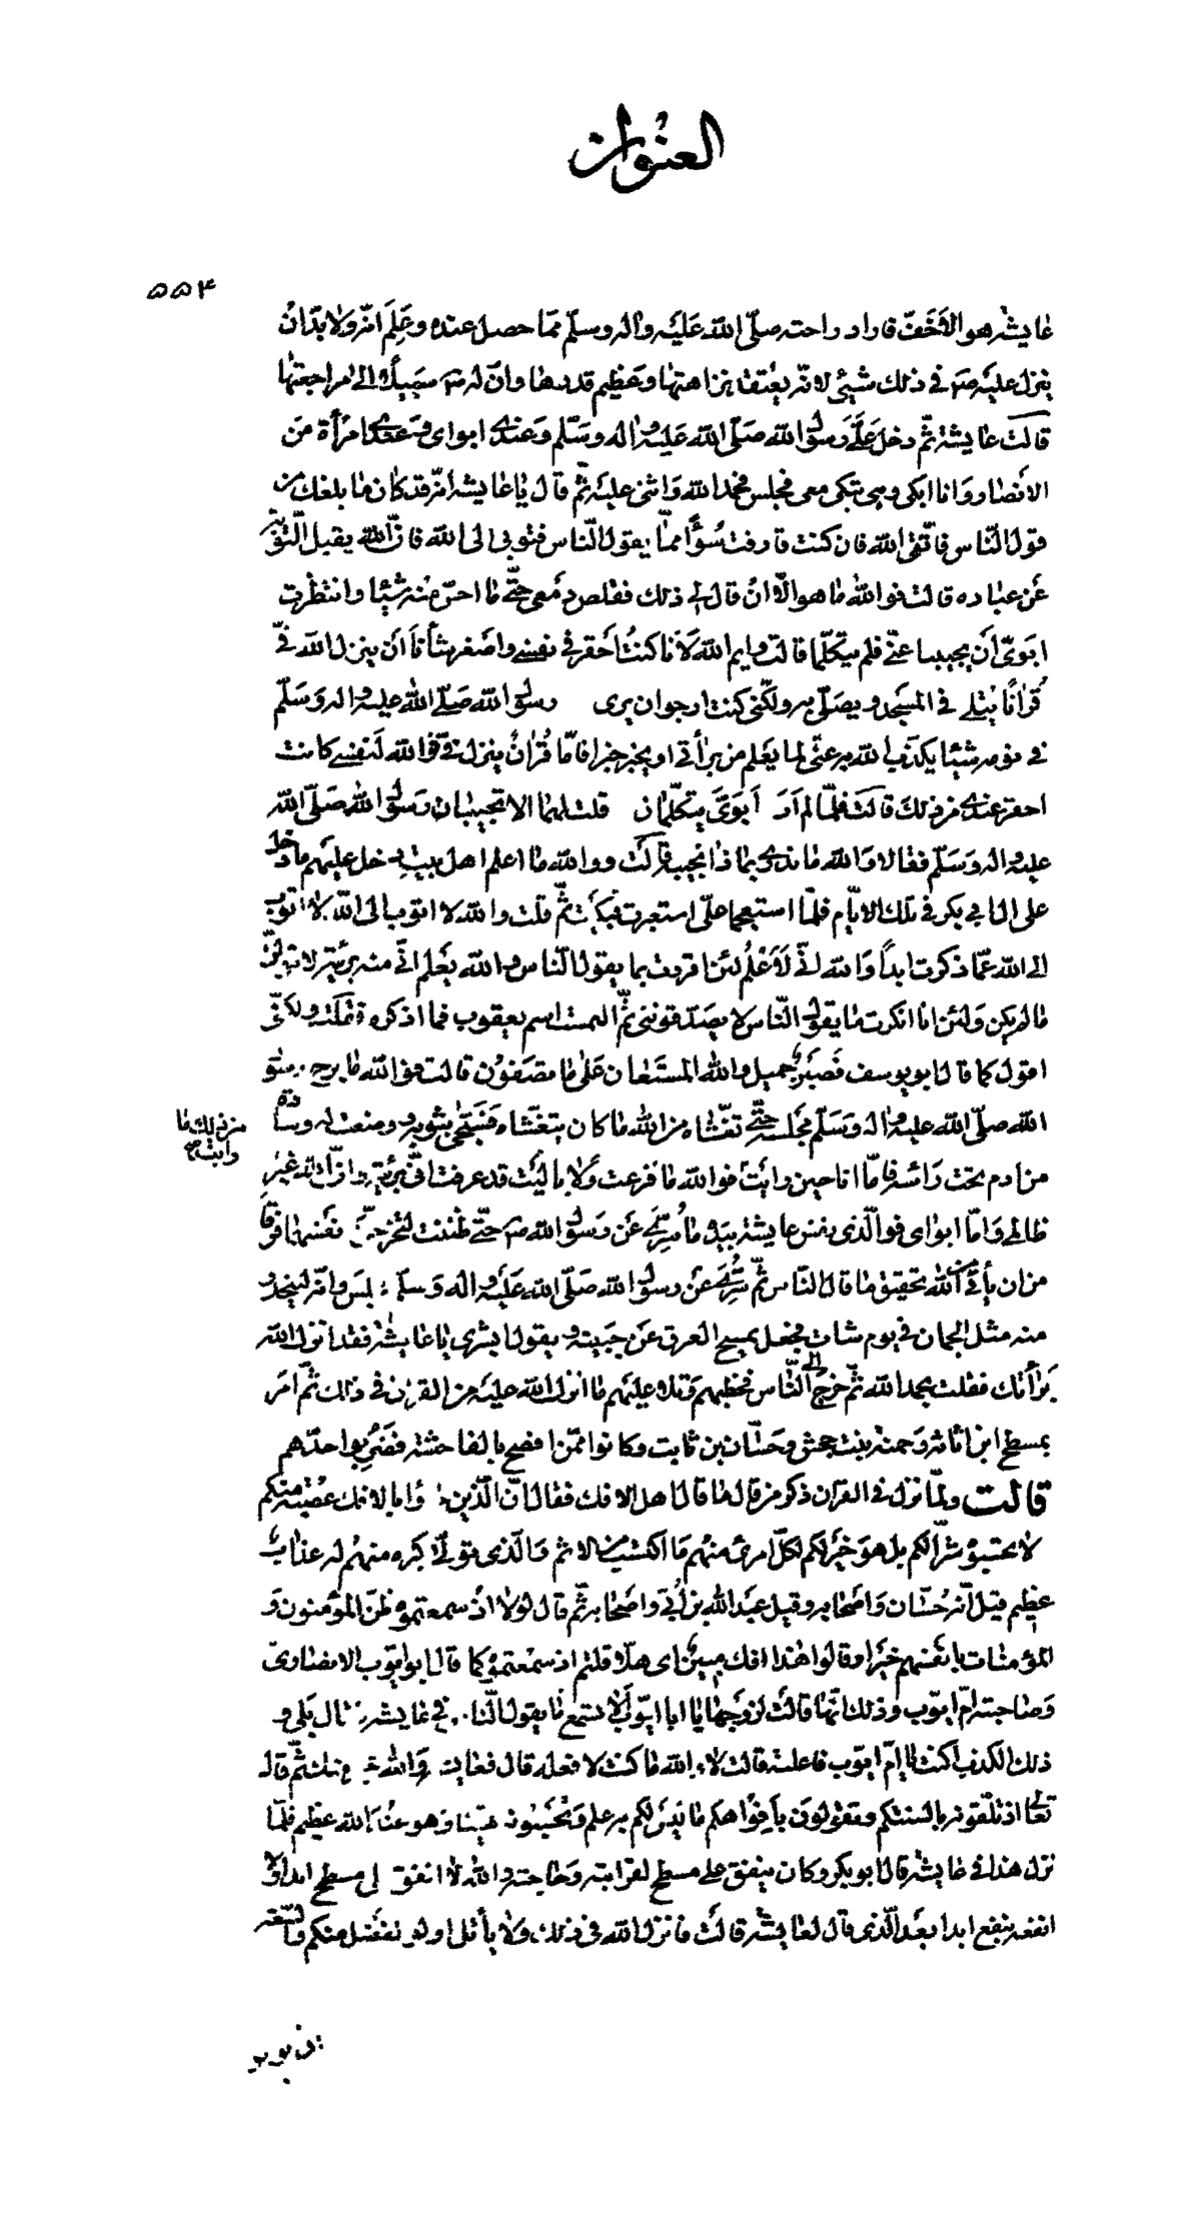 العنوان
۵۵۴
عايشه هو الاخفّ فاراد راحته صلّى الله عليه واله وسلّم ممّا حصل عنده وعلم انّه ولا بدّ ان
ينزل عليه ص في ذلك شيئ لانّه يعتقد بنزاهتها وعظيم قدرها وانّ له ص سبيلا الى مراجعتها
قالت عايشة ثمّ دخل عليّ رسول الله صلّى الله عليه واله وسلّم وعندي ابواى وعندى امرأة من
الانصار وانا ابكى وهى تبكى معى فجلس فحمد الله واثنى عليه ثمّ قال يا عايشه انّه قد كان ما بلغك من
قول النّاس فاتّقى الله فان كنت قارفت سُوًأ ممّا يقول النّاس فتوبى الى الله فانّ الله يقبل التّوبة
عن عباده قالت فوالله ما هو الّا انْ قال لى ذلك فقلص دمعى حتّى ما احسّ منه شيئا وانتظرت
ابوىّ أن يجيبا عنّى فلم يتكلّما قالت وايم الله لأنا كنتُ أحقر فى نفسى واصغر شأنا أن ينزل الله فىّ
قُرانًا يُتلى فى المسجد ويصلّى به ولكنّى كنت ارجوان يرى رسول الله صلّى الله عليه واله وسلّم
فى نومه شيئا يكذّب الله به عنّى لما يعلم من برأتى او يخبر خبرا فامّا قُرانٌ ينزل فىّ فوالله لنفسى كانت
احقر عندى من ذلك قالت فلمّا لم ار ابوىّ يتكلّمان قلت لهما الا تجيبان رسول الله صلّى الله
عليه واله وسلّم فقالا والله ما ندرى بما ذا نجيبه قالت ووالله ما اعلم اهل بيت دخل عليهم ما دخل
على ال ابى بكر فى تلك الايّام فلمّا استعجما علىّ استعبرت فبكيت ثمّ قلت والله لا اتوب الى الله
الى الله عمّا ذكرت ابداً والله انّى لأعلم لئن اقررت بما يقول النّاس والله يعلم انّى منه بريئة لا
ما لم يكن ولئن انا انكرت ما يقول النّاس لا يصدّقونى ثمّ التمست اسم يعقوب فما اذكره فقلت ولكنّى
اقول كما قال ابو يوسف فصبرٌ جميل والله المستعان على ما تصفون قالت فوالله ما برح رسول
الله صلّى الله عليه واله وسلّم مجلسه حتّى تغشّاه من الله ما كان يتغشّاه فسجّى بثوبه ووضعت له وسادة
من ذلك ما رأيت
من ادم تحت رأسه فامّا انا حين رأيت فوالله ما فزعت ولا باليت قد عرفت انّى بريئة وانّ الله غير
ظالمى وامّا ابواى فوالّذى نفس عايشة بيده ما سرّى عن رسول الله ص حتّى ظننت لتخرجنّ نفسهما فرقا
من ان يأتى من الله تحقيق ما قال النّاس ثمّ سُرّى عن رسول الله صلّى الله عليه واله وسلّم جلس وانّه ليتحدّر
منه مثل الجمان فى يوم شات فجعل يمسح العرق عن جبينه ويقول ابشرى يا عايشة فقد انزل الله
برأتك فقلت بحمد الله ثمّ خرج الى النّاس فخطبهم وتلا عليهم ما انزل الله عليه من القران فى ذلك ثمّ امر
بمسطح ابن اثاثه وحمنه بنت جحش وحسّان بن ثابت وكانوا ممّن افصح بالفاحشة فضُرِبوا حدّهم
قالت ولمّا نزل فى القران ذكر من قال ما قال اهل الافك فقال انّ الّذين جاؤا بالافك عصبة منكم
لا تحسبوه شرّا لكم بل هو خير لكم لكلّ امرئ منهم ما اكتسب من الاثم والّذى تولّى كبره منهم له عذاب
عظيم قيل انّه حسّان واصحابه وقيل عبد الله بن أبىّ واصحابه ثمّ قال لولا اذ سمعتموه ظنّ المؤمنون و
المؤمنات بانفسهم خيرا وقالوا هذا افك مبين اى هلّا قلتم اذ سمعتموه كما قال ابو ايّوب الانصارىّ
وصاحبته امّ ايّوب وذلك انّها قالت لزوجها يا ابا ايّوب الا تسمع ما يقول النّاس فى عايشه قال بلى و
ذلك الكذب أكنت يا امّ ايّوب فاعلته قالت لا والله ما كنت لا فعله قال فعايشه والله خير منك ثمّ قال
تعالى اذ تلقّونه بالسنتكم وتقولون بأفواهكم ما ليس لكم به علم وتحسبونه هيّنا وهو عند الله عظيم فلمّا
نزل هذا فى عايشه قال ابو بكر وكان ينفق على مسطح لقرابته وحاجته والله لا انفق على مسطح ابدا ولا
انفعه بنفع ابدا بعد الّذى قال لعايشة قالت فانزل الله فى ذلك ولا يأتل اولوا الفضل منكم والسّعة